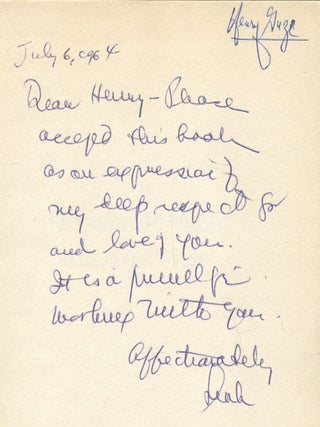 Henry Guze
July 6, 1964
Dear Henry - Please
accept this book
as an expression of
my deep respect for
and love of you.
It is a privilege
working with you.
Affectionately
Leah